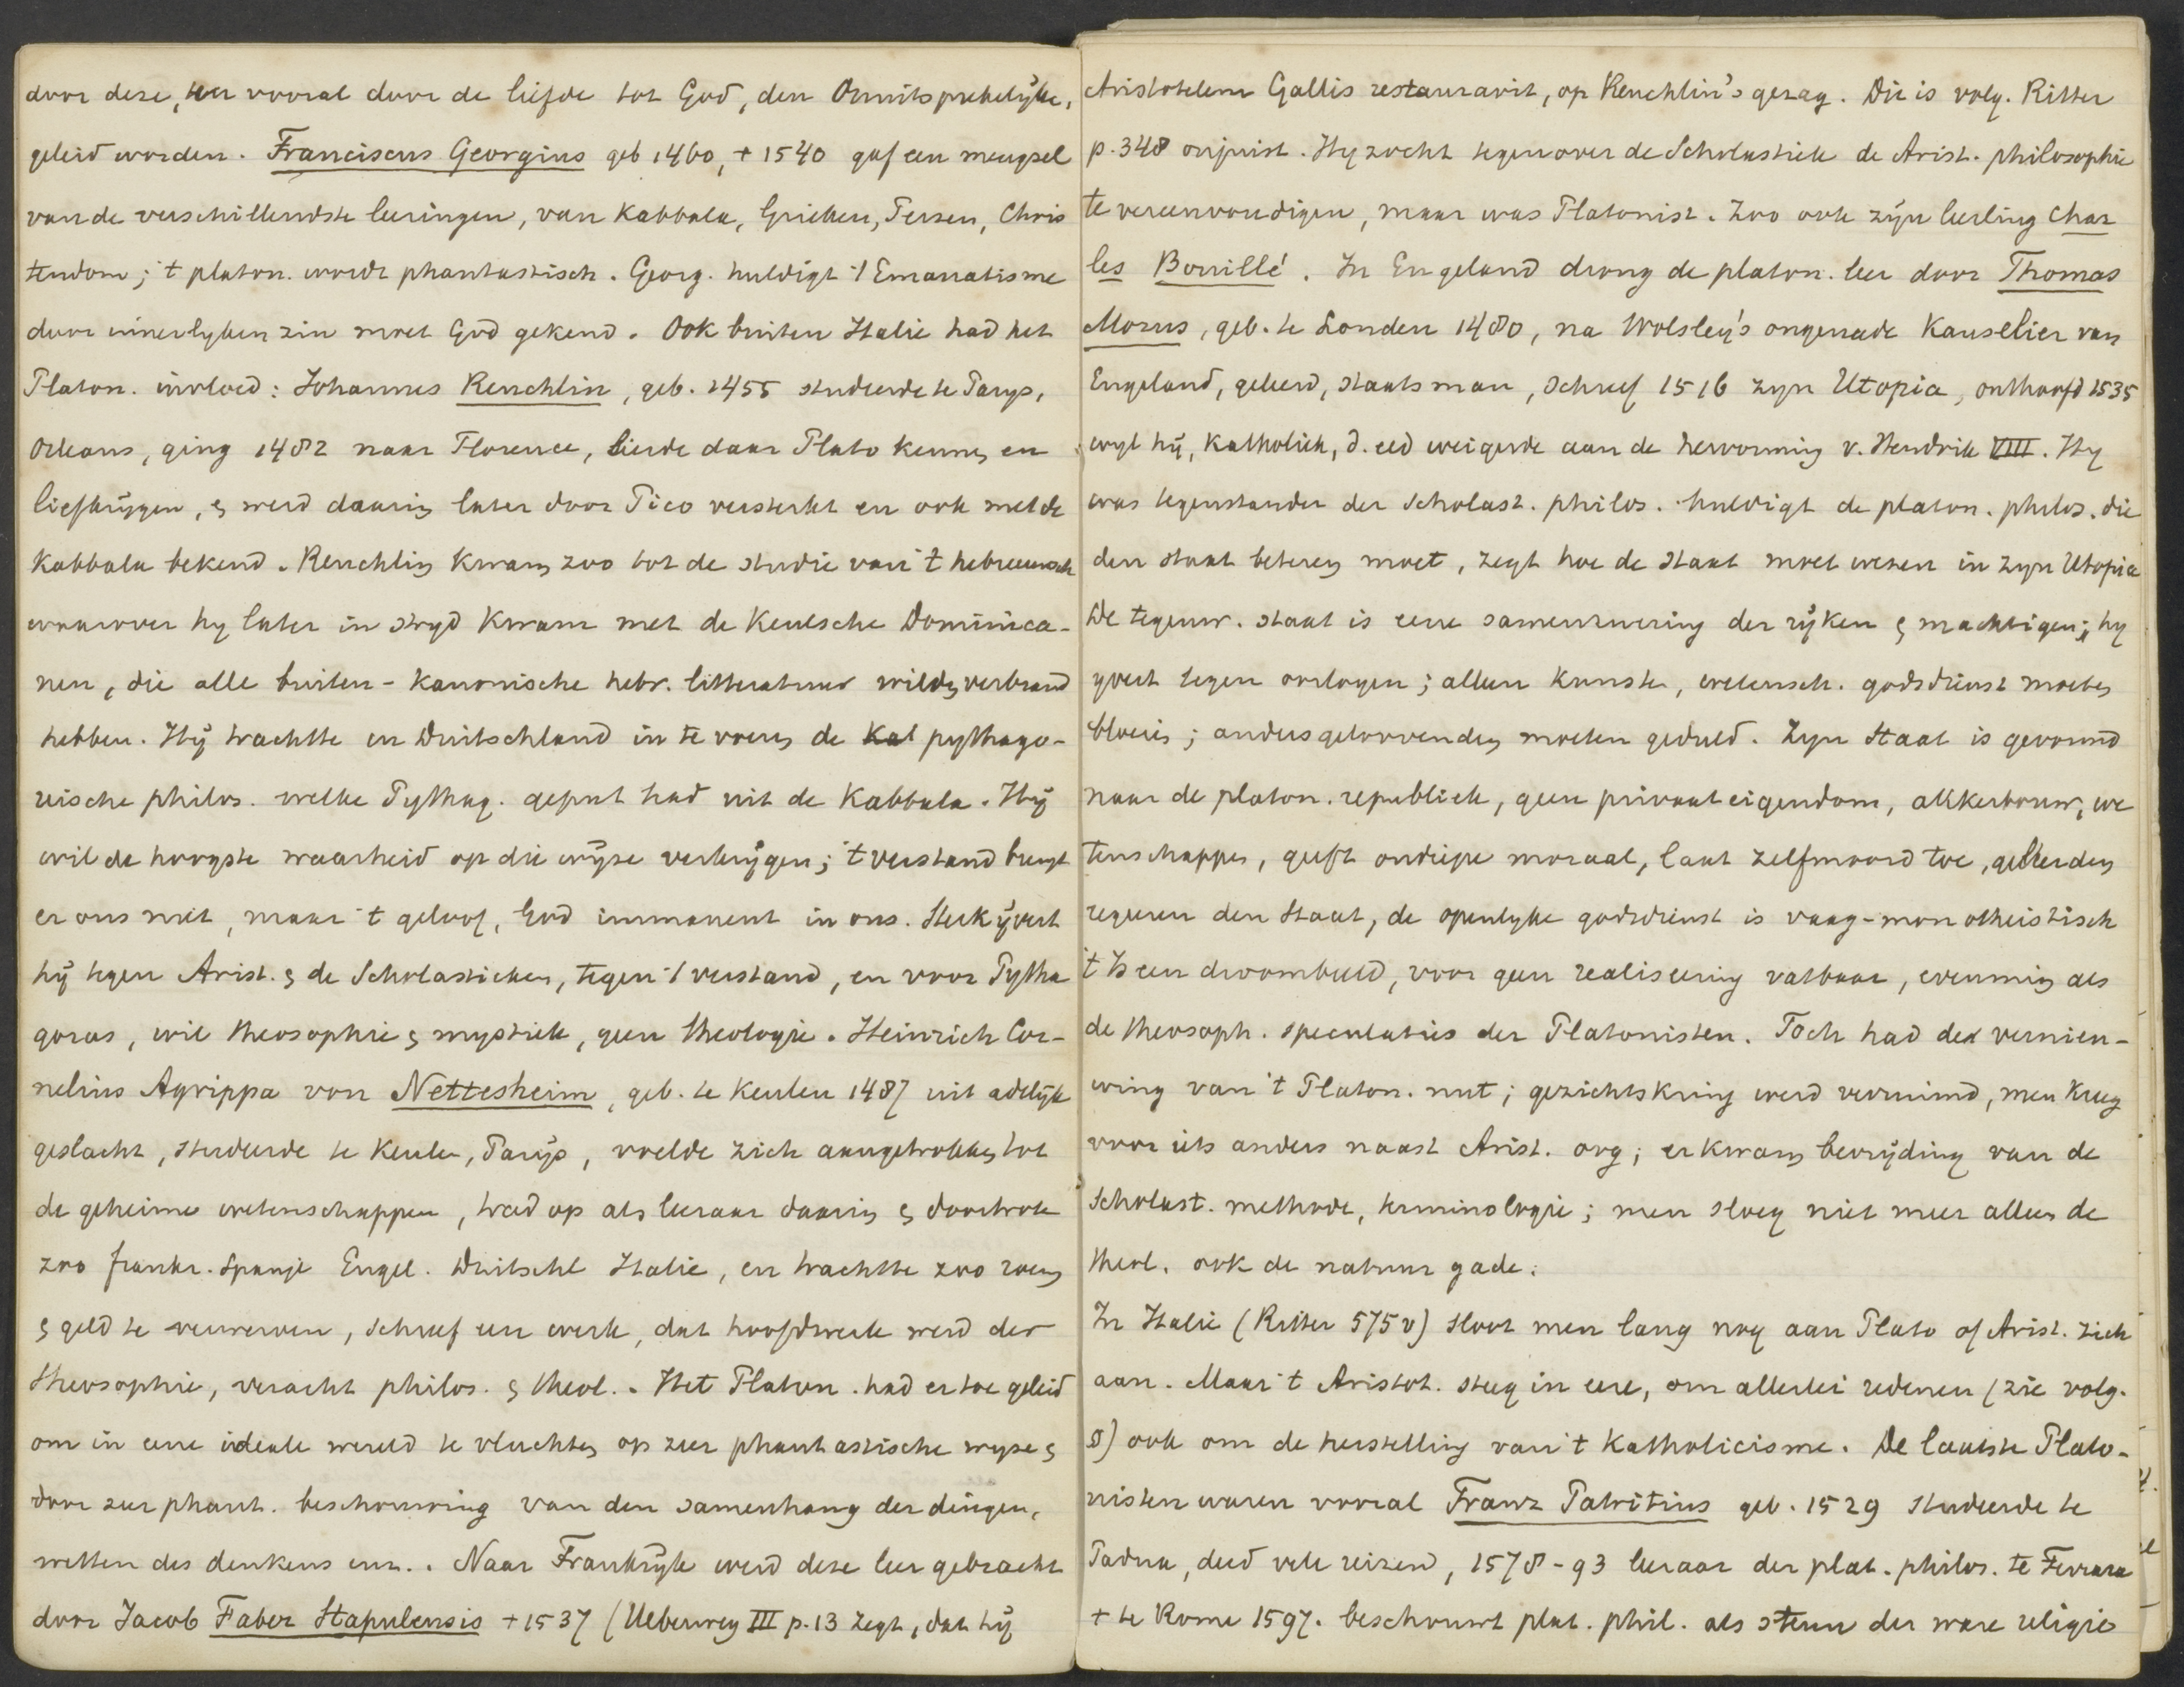 door deze, en vooral door de liefde tot God, den Onuitsprekelyke,
geleid worden. Franciscus Georgius geb 1460, + 1540 gaf een mengsel
van de verschillendste leeringen, van Kabbala, Grieken, Perzen, Chris
tendom; 't platon. wordt phantastisch. Georg. huldigt 't Emanatisme
door innerlyken zin moet God gekend. Ook buiten Italie had het
Platon. invloed: Johannes Reuchlin, geb. 1455 studeerde te Parys,
Orleans, ging 1482 naar Florence, leerde daar Plato kennen en
liefkrijgen, & werd daarin later door Pico versterkt en ook met de
Kabbala bekend. Reuchlin kwam zoo tot de studie van 't hebreeuwsch
waarover hy later in stryd kwam met de Keulsche Dominica-
nen, die alle buiten-kanonische hebr. litteratuur wilden verbrand
hebben. Hij trachtte in Duitschland in te voeren de Kal pythago-
reische philos. welke Pythag. geput had uit de Kabbala. Hij
wil de hoogste waarheid op die wijze verkrijgen; 't verstand brengt
er ons niet, maar 't geloof, God immanent in ons. Sterk ijvert
hij tegen Arist. & de Scholastieken, tegen 't verstand, en voor Pytha
goras, wil theosophie & mystiek, geen theologie. Heinrich Cor-
nelius Agrippa von Nettesheim, geb. te Keulen 1487 uit adelijk
geslacht, studeerde te Keulen, Parijs, voelde zich aangetrokken tot
de geheime wetenschappen, trad op als leeraar daarin & doortrok
zoo frankr. Spanje Engel. Duitschl Italie, en trachtte zoo roem
& geld te verwerven, schreef een werk, dat hoofdwerk werd der
theosophie, veracht philos. & theol.. Het Platon. had er toe geleid
om in eene ideale wereld te vluchten op zeer phantastische wyze &
door zeer phant. beschouwing van den samenhang der dingen,
wetten des denkens enz.. Naar Frankrijk werd deze leer gebracht
door Jacob Faber Stapulensis + 1537 (Ueberweg III p. 13 zegt, dat hij
Aristotelem Gallis restauravit, op Reuchlin's gezag. Dit is volg. Ritter
p. 348 onjuist. Hy zocht tegenover de Scholastiek de Arist. philosophie
te vereenvoudigen, maar was Platonist. Zoo ook zijn leerling Char
les Bouillé. In Engeland drong de platon. leer door Thomas
Morus, geb. te Londen 1480, na Wolsley's ongenade Kanselier van
Engeland, geleerd, staatsman, schreef 1516 zyn Utopia, onthoofd 1535
wyl hij, Katholiek, d. eed weigerde aan de hervorming v. Hendrik VIII. Hy
was tegenstander der Scholast. philos. huldigt de platon. philos. die
den staat beteren moet, zegt hoe de staat moet wezen in zyn Utopia
De tegenw. staat is eene samenzwering der rijken & machtigen; hy
yvert tegen oorlogen; alleen kunsten, wetensch. godsdienst moeten
bloeien; andersgeloovenden moeten geduld. Zyn Staat is gevormd
naar de platon. republiek, geen privaateigendom, akkerbouw, we
tenschappen, geeft ondiepe moraal, laat zelfmoord toe, geleerden
regeeren den Staat, de openlyke godsdienst is vaag-monotheistisch
't Is een droombeeld, voor geen realiseering vatbaar, evenmin als
de theosoph. speculaties der Platonisten. Toch had de vernieu-
wing van 't Platon. nut; gezichtskring werd verruimd, men kreeg
voor iets anders naast Arist. oog; er kwam bevrijding van de
Scholast. methode, terminologie; men sloeg niet meer alleen de
theol. ook de natuur gade.
In Italie (Ritter 575 v) sloot men lang nog aan Plato of Arist. zich
aan. Maar 't Aristot. steeg in eere, om allerlei redenen (zie volg.
§) ook om de herstelling van 't Katholicisme. De laatste Plato-
nisten waren vooral Franz Patritius geb. 1529 studeerde te
Padua, deed vele reizen, 1578-93 leeraar der plat. philos. te Ferrara
+ te Rome 1597. beschouwt plat. phil. als steun der ware religie